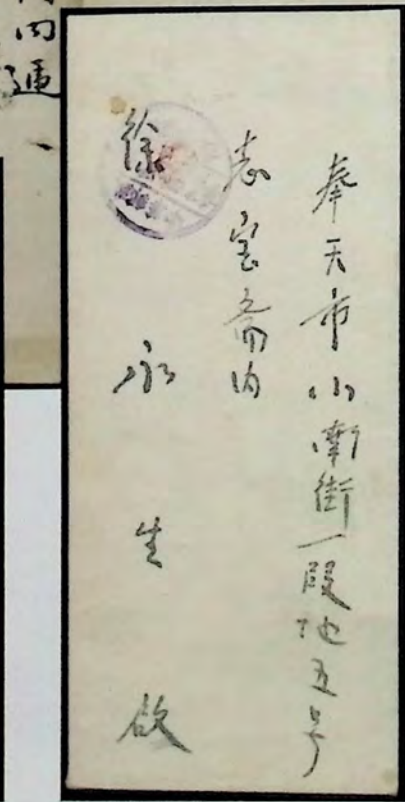 奉天市小南街一段地五号
志宝斋内
徐永生啟
内
遞